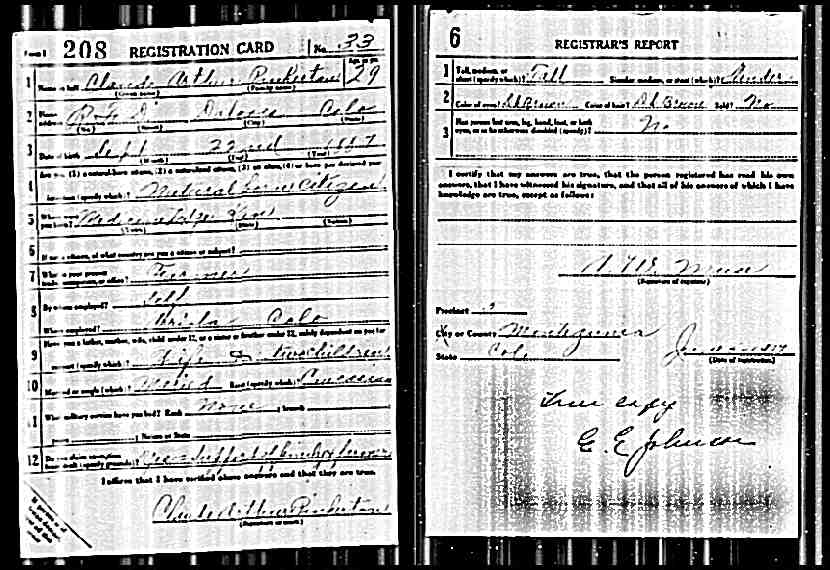 Form 1 208 REGISTRATION CARD No. 33
1 Name in full Claude Arthur Pinkerton Age, in yrs. 29
(Given name) (Family name)
2 Home address Colo
(No.) (Street) (City) (State)
3 Date of birth Sept 22nd 1887
(Month) (Day) (Year)
4 Are you (1) a natural-born citizen, (2) a naturalized citizen, (3) an alien, (4) or have you declared your
intention (specify which)? Natural born citizen
5 Where were you born? Medicine Lodge Kans
(Town) (State) (Nation)
6 If not a citizen, of what country are you a citizen or subject?
7 What is your present trade, occupation, or office? Farmer
8 By whom employed? Self
Where employed? Colo
9 Have you a father, mother, wife, child under 12, or a sister or brother under 12, solely dependent on you for
support (specify which)? Wife & two children
10 Married or single (which)? Married Race (specify which)? Caucasian
11 What military service have you had? Rank None ; branch
years ; Nation or State
12 Do you claim exemption from draft (specify grounds)? Yes support of family farmer
I affirm that I have verified above answers and that they are true.
Claude Arthur Pinkerton
(Signature or mark)
If person is
of African
descent, tear
off this
corner
6 REGISTRAR'S REPORT
1 Tall, medium, or short (specify which)? Tall Slender, medium, or stout (which)? Slender
2 Color of eyes? Dk Brown Color of hair? Dk Brown Bald? No
3 Has person lost arm, leg, hand, foot, or both
eyes, or is he otherwise disabled (specify)? No
I certify that my answers are true, that the person registered has read his own
answers, that I have witnessed his signature, and that all of his answers of which I have
knowledge are true, except as follows:
(Signature of registrar)
Precinct 2
City or County Montezuma
State Colo
(Date of registration)
True copy
G. E. Johnson